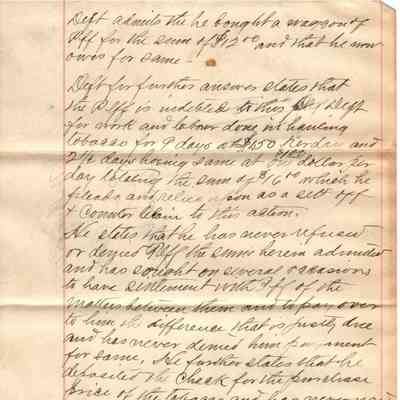 Deft admits the he bought a waggon of
Plff for the sum of $12.00 and that he now
owes for same.
Deft for further answer states that
the Plff is indebted to this Deft
for work and labour done in hauling
tobacco for 9 days at $1.50 per day and
2½ days housing same at dollar per
day totaling the sum of $16.00 which he
pleads and relies upon as a sett off
& Counter Claim to this action.
He states that he has never refused
or denied Plff the sum herein admitted
and has sought on several occasions
to have settlement with Plff of the
matters between them and to pay over
to him the difference that is justly due
and has never denied him payment
for same. He further states that he
deposited the Check for the purchase
price of the tobacco and has never